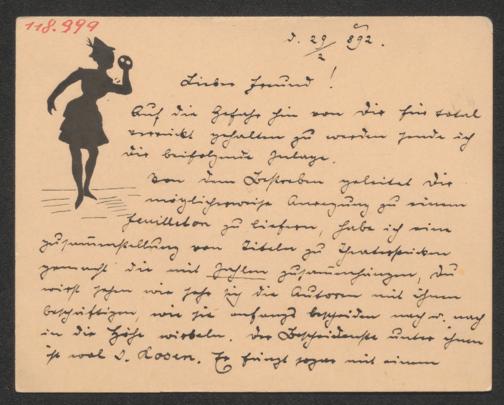 118.999
d. 29/2 892.
Lieber Freund!
Auf die Gefahr hin von Dir für total
verrückt gehalten zu werden sende ich
Dir beifolgende Zulage.
Von dem Bestreben geleitet Dir
möglicherweise Anregung zu einem
Feuilleton zu liefern, habe ich eine
Zusammenstellung von Titeln zu Theaterstücken
gemacht die mit Zahlen zusammenhängen, Du
wirst sehen wie sehr sich die Autoren mit ihnen
beschäftigen, wie sie anfangs bescheiden nach u. nach
in die Höhe wirbeln. Der Bescheidenste unter ihnen
ist wol J. Rosen. Er fängt sogar mit einem